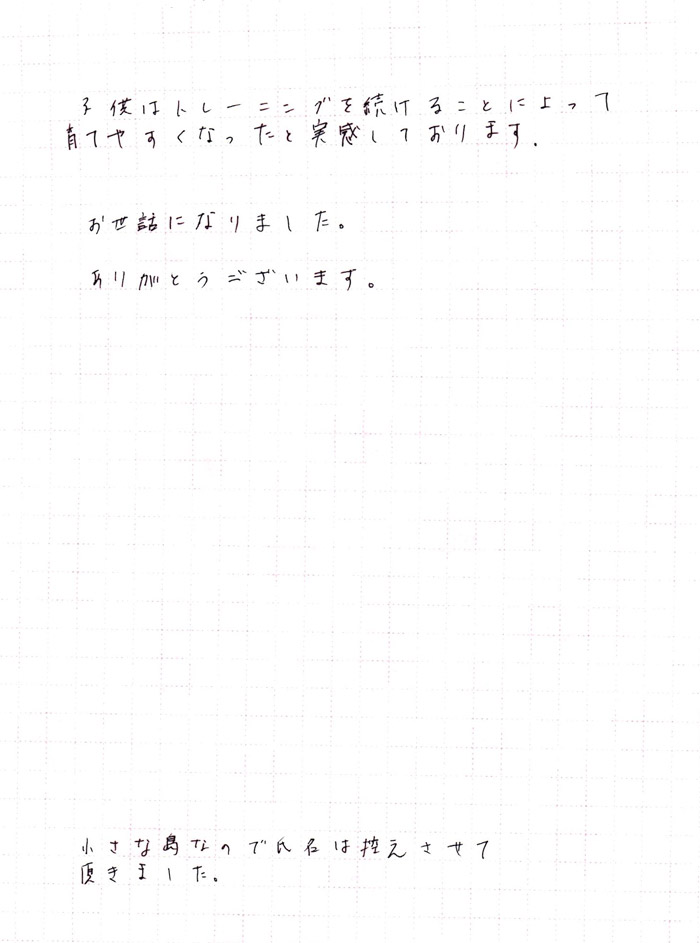 子供はトレーニングを続けることによって
育てやすくなったと実感しております.
お世話になりました。
ありがとうございます。
小さな島なので氏名は控えさせて
頂きました.